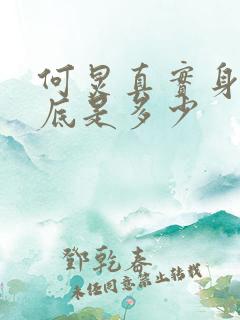 何炅真實身
底是多少
鄧乾春
未任同意禁止轉載